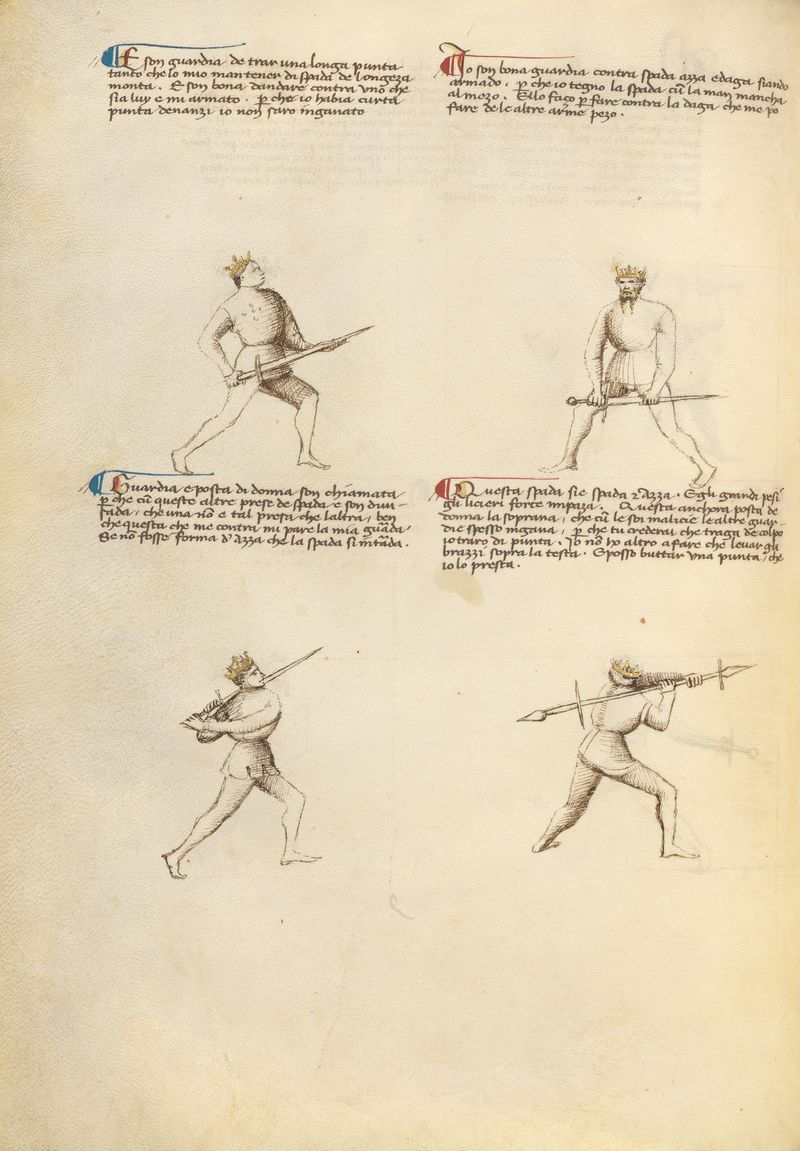 E son guardia de trar una longa punta
tanto che lo mio mantener di spada de longeza
monta. E son bona dandare contra uno che
sia luy e mi armato. p che io habia curta
punta denanzi io non saro inganato
Io son bona guardia contra spada azza e daga siando
armado. p che io tegno la spada cu la man mancha
al mezo. Ello faço p fare contra la daga che me po
fare de le altre arme pezo.
Guardia e posta di donna son chiamata
p che cu queste altre prese de spada e son divi-
sada / che una no e tal presa che laltra / ben
che questa che me contra mi pare la mia guada /
Se no fosse forma d'azza che la spada si mtada.
Questa spada sie spada z azza. E gli grandi pesi
gli licieri forte impaza. Questa anchora posta de
donna la soprana / che cu le soi malicie le altre guar-
die spesso ingana / p che tu crederai che traga de colpo
io traro di punta. Io no ho altro a fare che levar gli
brazzi sopra la testa. E posso buttar una punta / che
io lo presta.